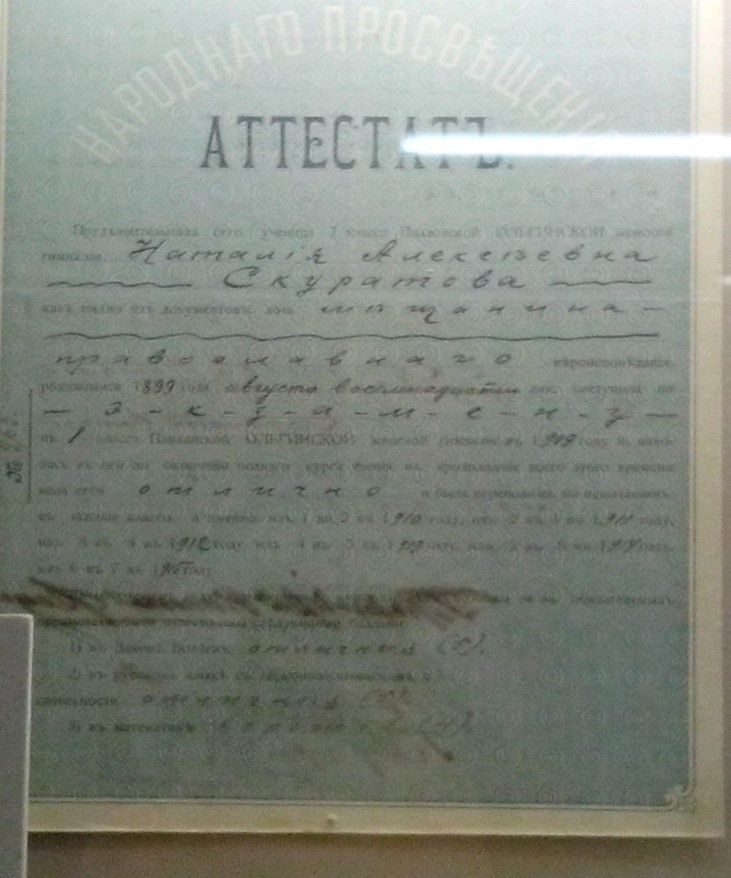 НАРОДНАГО ПРОСВѢЩЕНІЯ
АТТЕСТАТЪ.
Предъявительница сего, ученица 7 класса Павловской ОЛЬГИНСКОЙ женской
гимназіи, Наталія Алексѣевна
Скуратова
какъ видно изъ документовъ, дочь мѣщанина
православнаго вѣроисповѣданія,
родившаяся 1899 года августа восемнадцатаго дня, поступила по
э-к-з-а-м-е-н-у
въ 1 классъ Павловской ОЛЬГИНСКОЙ женской гимназіи въ 1909 году и,
до окончанія полнаго курса ученія и въ продолженіе всего этого времени
вела себя отлично и была переводима, по испытаніямъ,
въ классы, а именно: изъ 1 во 2 въ 1910 году, изъ 2 въ 3 въ 1911 году,
изъ 3 въ 4 въ 1912 году, изъ 4 въ 5 въ 1913 году, изъ 5 въ 6 въ 1914 году,
изъ 6 въ 7 въ 1915 году.
1) въ Законѣ Божіемъ отличныя (5).
2) въ русскомъ языкѣ съ
словесности отличныя (5).
3) въ математикѣ хорошія (4).